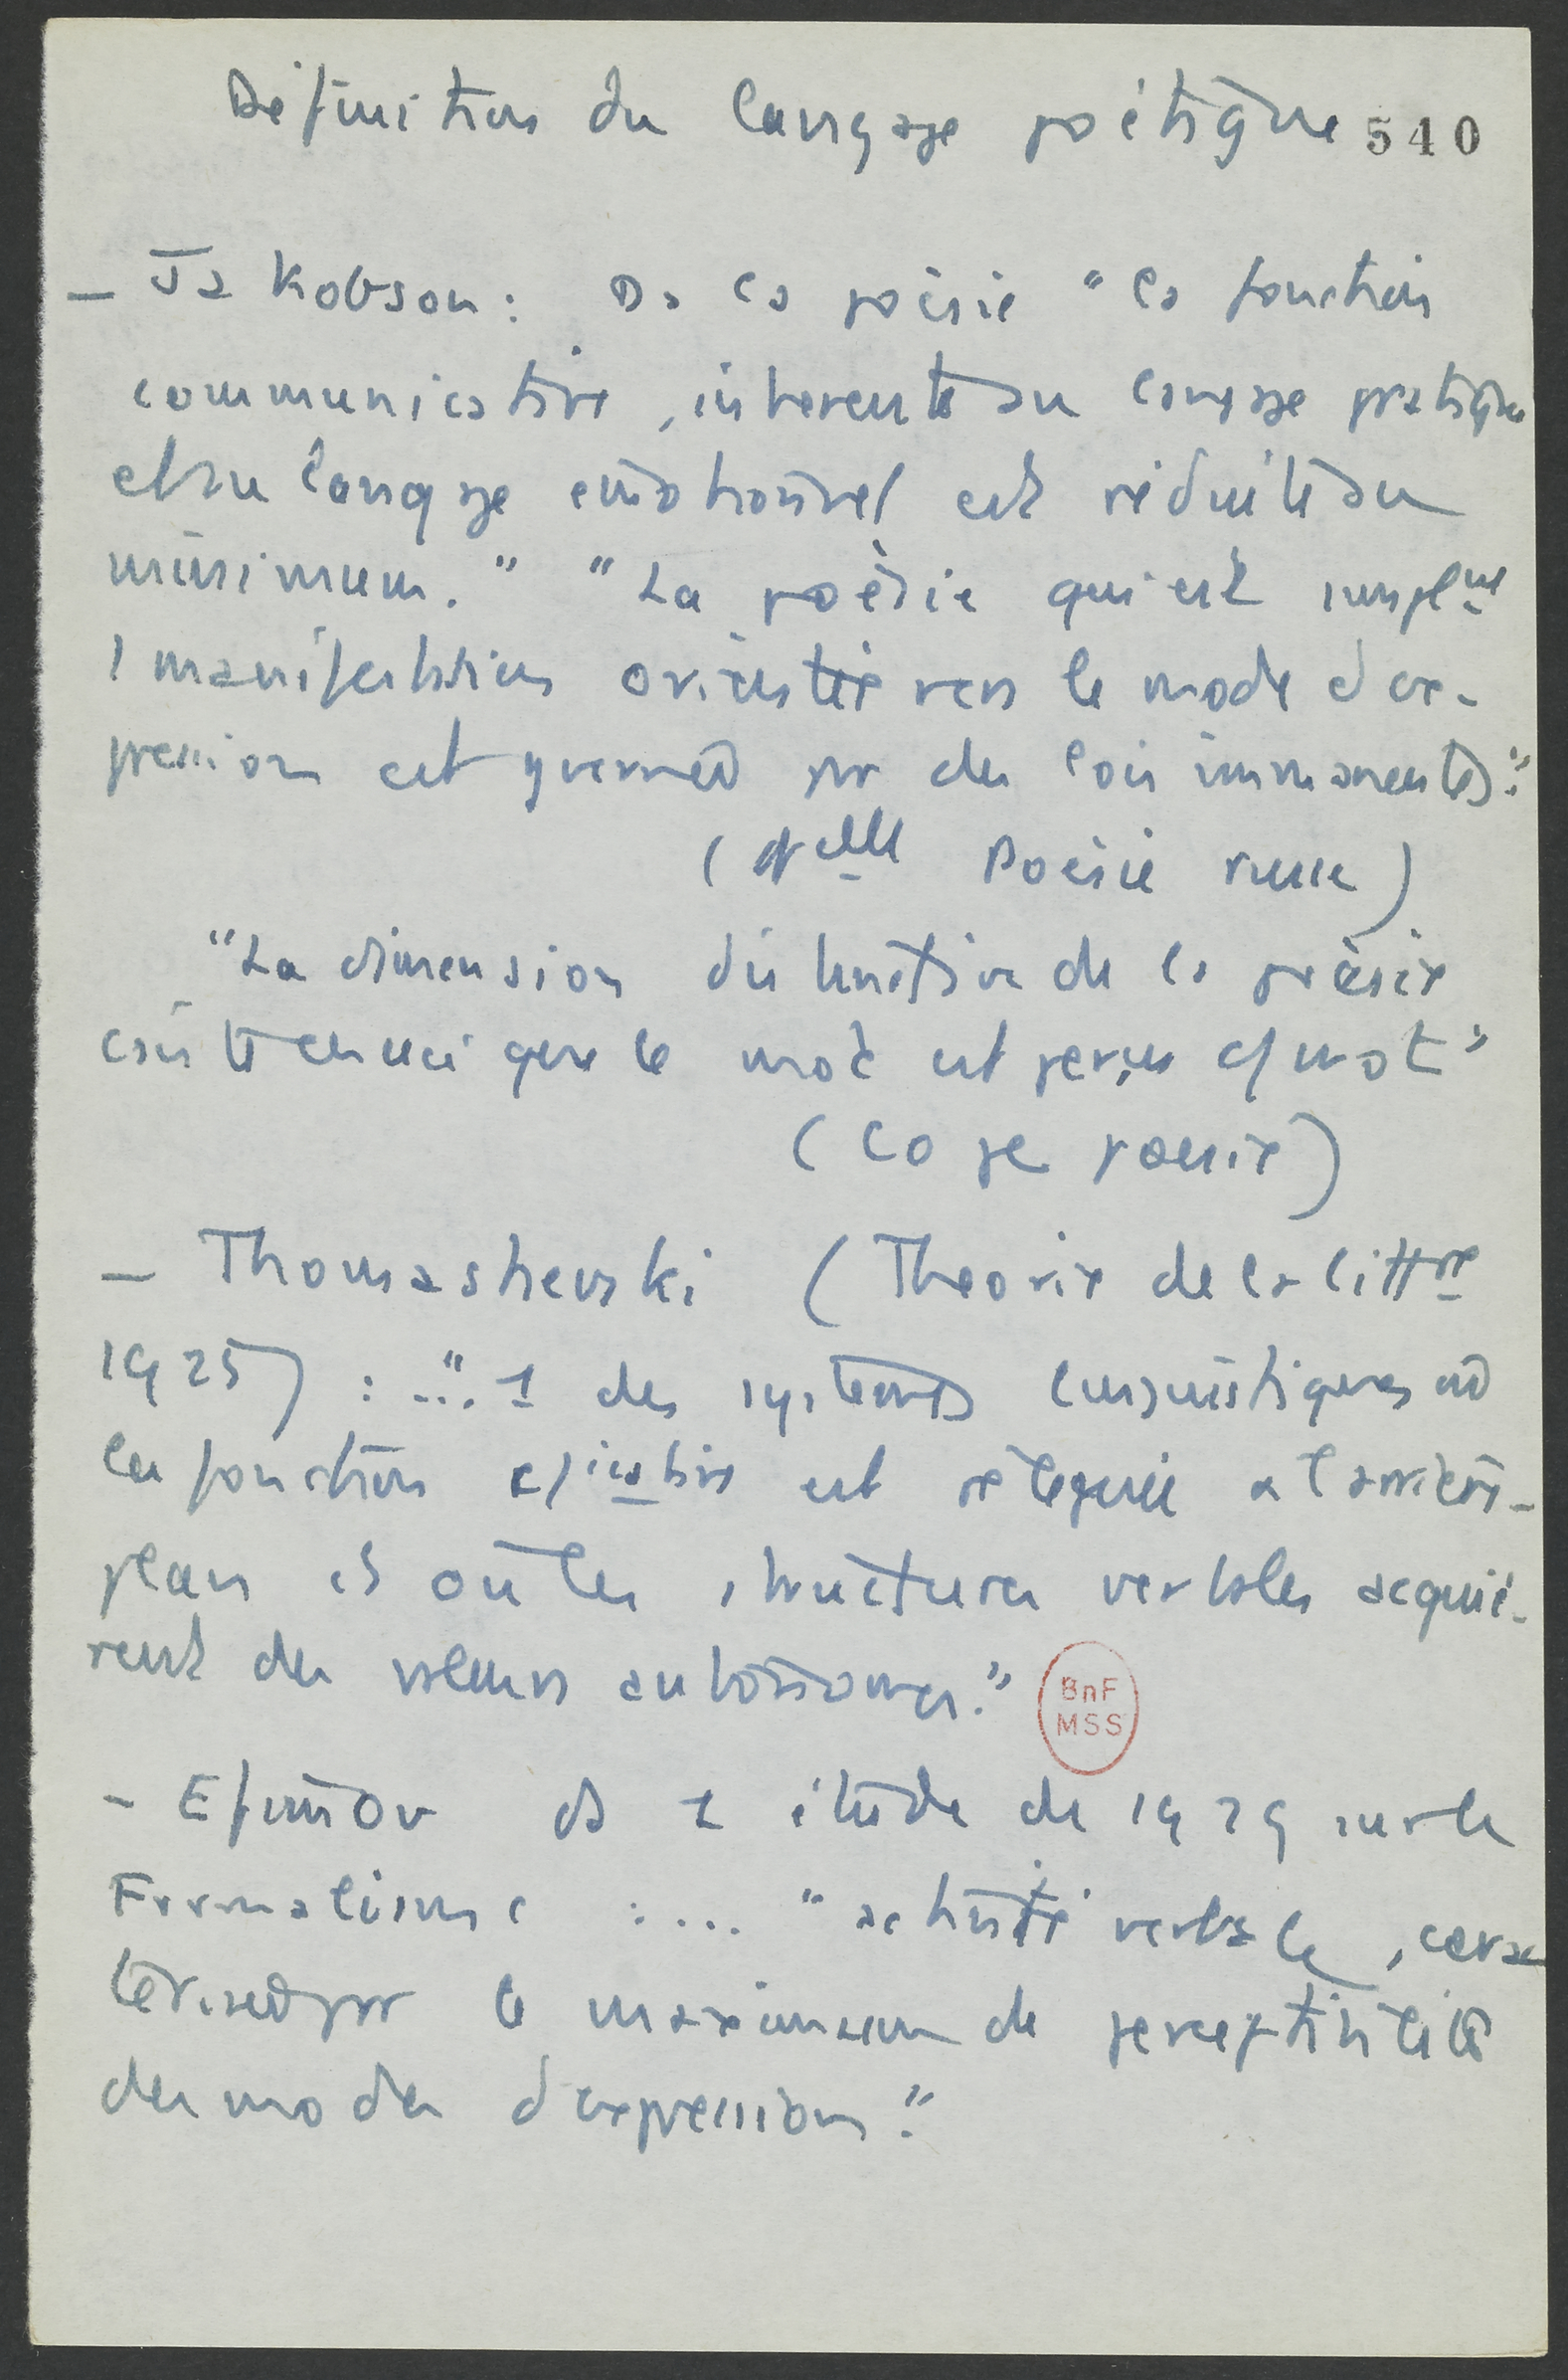 Définition du langage poétique 540
– Jakobson : Ds la poésie "la fonction
communicative, inhérente au langage pratique
et au langage émotionnel est réduite au
minimum." "La poésie qui est simplmt
1 manifestation orientée vers le mode d'ex-
pression est gouvernée par des lois immanentes."
(Nelle Poésie russe)
"La dimension distinctive de la poésie
consiste en ceci que le mot est perçu c/ mot"
(Co je poesie)
– Thomashevski (Théorie de la littre
1925) : ..." 1 des systèmes linguistiques où
la fonction c/icative est reléguée à l'arrière-
plan et où les structures verbales acquiè-
rent des valeurs autonomes."
BnF
MSS
– Efimov ds 1 étude de 1929 sur le
Formalisme : ... "activité verbale, carac
térisée par le maximum de perceptibilité
des modes d'expression."